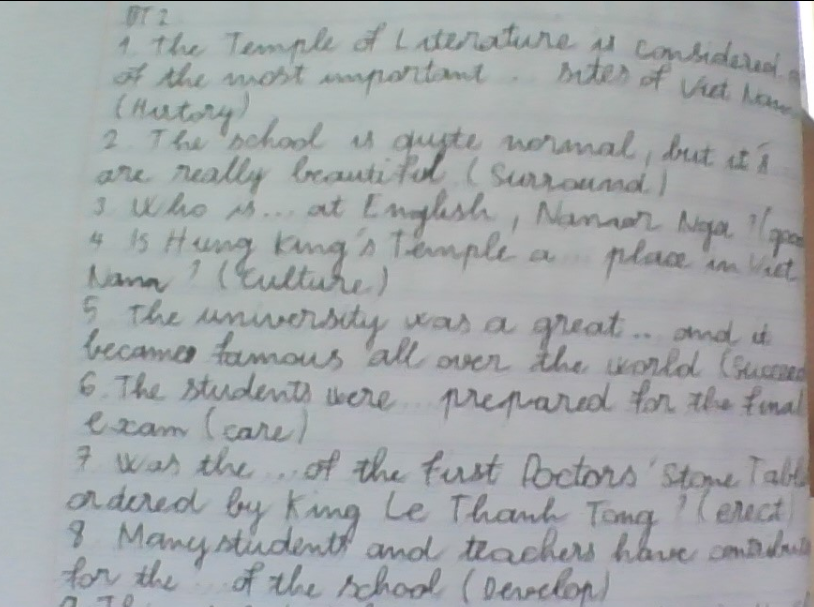 BT 2
1. The Temple of Literature is considered
of the most important ... sites of Viet Nam
(History)
2. The school is quite normal, but it's
are really beautiful (Surround)
3 Who is ... at English, Nam or Nga ?
4 Is Hung King's Temple a ... place in Viet
Nam ? (Culture)
5 The university was a great ... and it
became famous all over the world
6. The students were ... prepared for the final
exam (care)
7 Was the ... of the first Doctors' Stone
ordered by King Le Thanh Tong ? (erect)
8 Many students and teachers have
for the ... of the school (Develop)